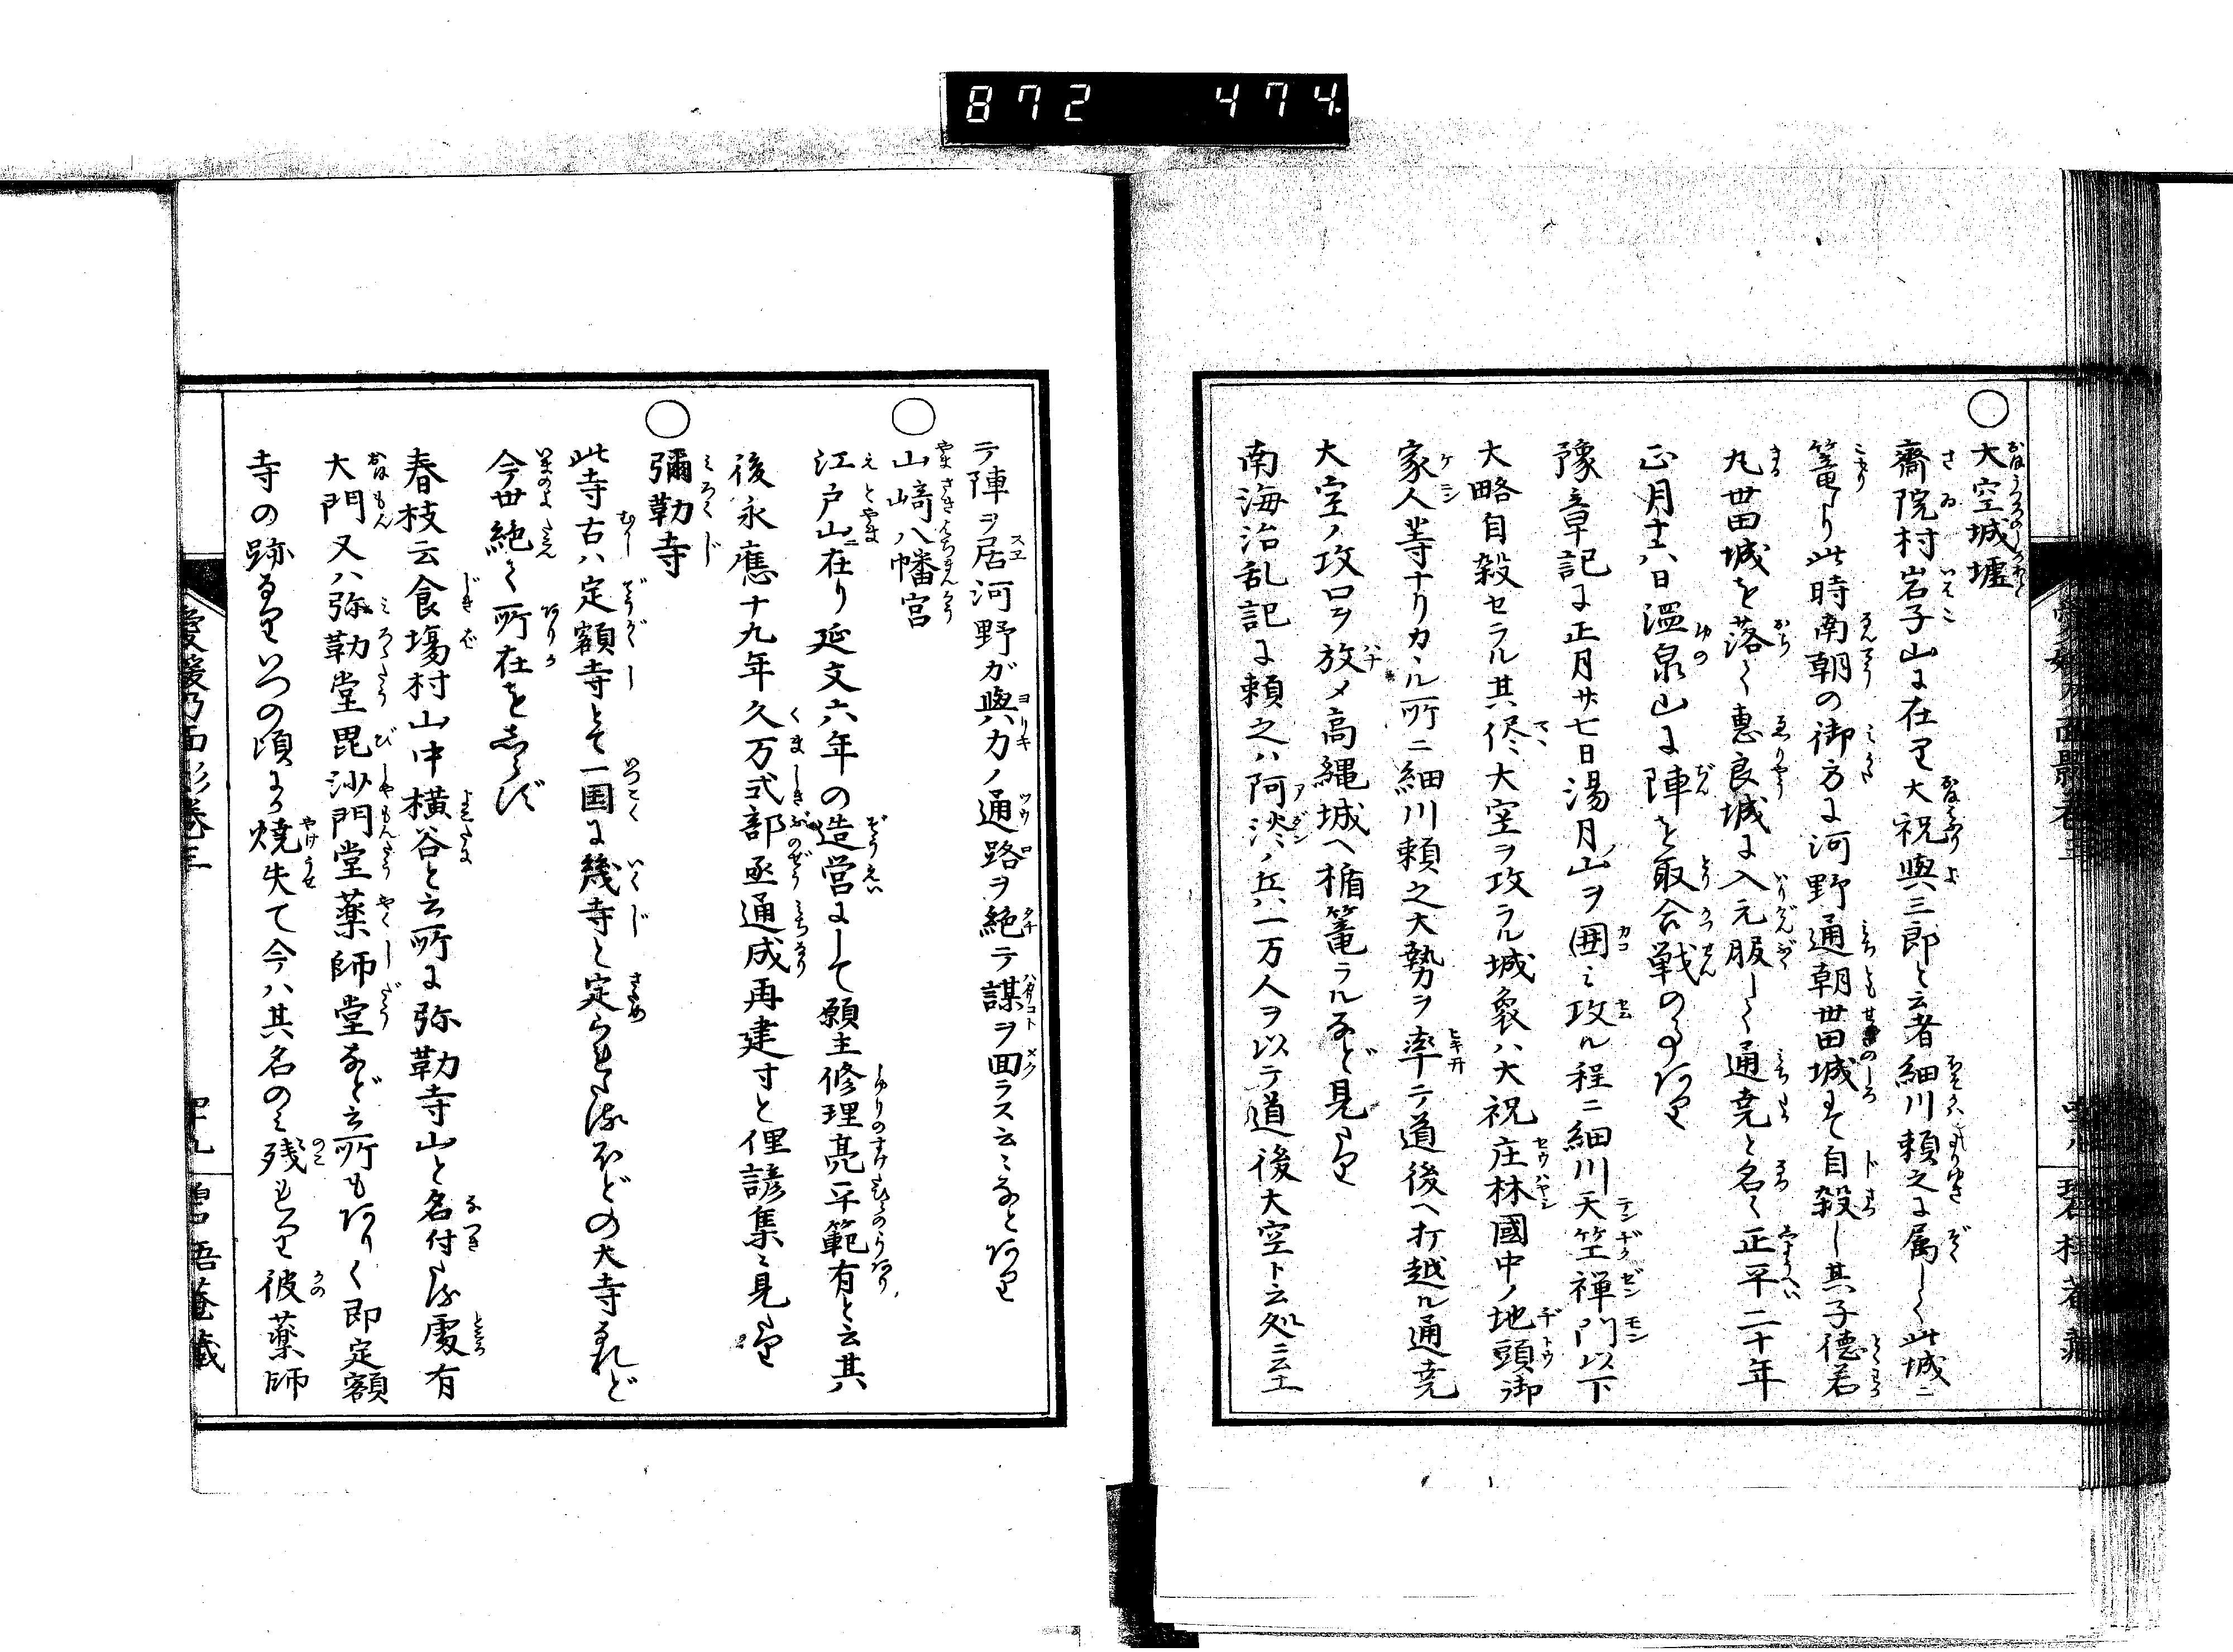 872 474
○大空城墟
齋院村岩子山に在り大祝與三郎と云者細川頼之に属して此城ニ
篭り此時南朝の御方に河野通朝世田城にて自殺し其子徳若
丸世田城を落て惠良城に入元服して通尭と名く正平二十年
正月十八日温泉山に陣を取合戦の事あり
豫章記に正月廿七日湯月山ヲ囲ミ攻ル程ニ細川天竺禅門以下
大略自殺セラル其侭大空ヲ攻ラル城衆ハ大祝庄林國中ノ地頭御
家人等ナリカヽル所ニ細川頼之大勢ヲ率テ道後ヘ打越ル通尭
大空ノ攻口ヲ放メ高縄城ヘ楯篭ラルなど見えたり
南海治乱記に頼之ハ阿淡ノ兵一万人ヲ以テ道後大空ト云処ニ至
テ陣ヲ居河野ガ與力ノ通路ヲ絶テ謀ヲ回ラス云々なとあり
○山﨑八幡宮
江戸山ニ在り延文六年の造営にして願主修理亮平範有と云其
後永應十九年久万式部丞通成再建すと俚諺集ニ見えたり
○彌勒寺
此寺古ハ定額寺とて一国に幾寺と定られたるほどの大寺なれど
今世絶て所在をしらず
春枝云食塲村山中横谷と云所に弥勒寺山と名付たる處有
大門又ハ弥勒堂毘沙門堂薬師堂など云所もありて即定額
寺の跡なりいつの頃にか焼失て今ハ其名のミ残れり彼薬師
愛媛乃面影巻三